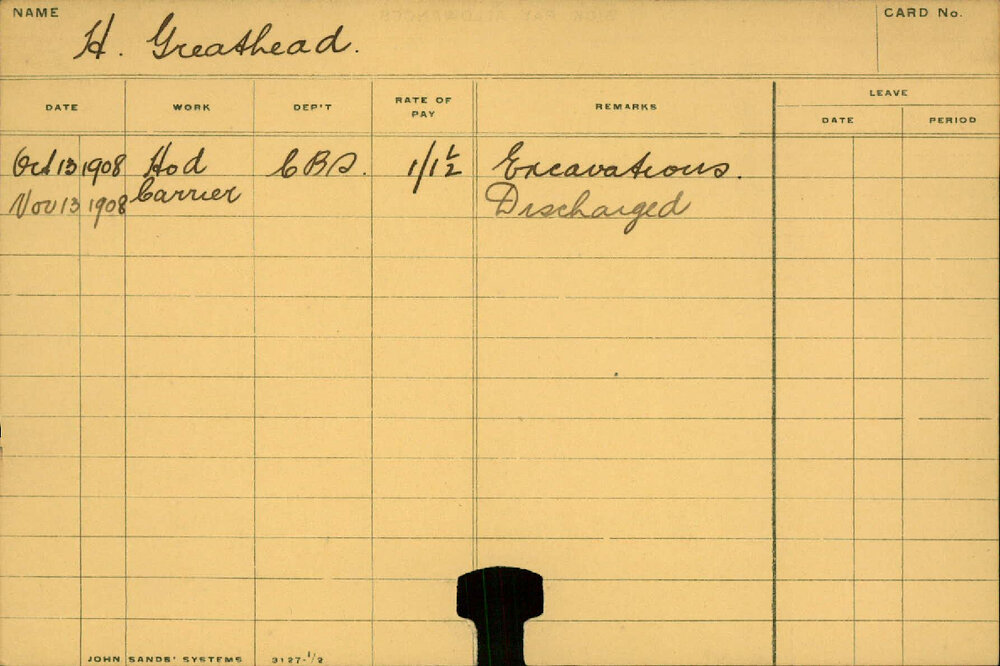 NAME
CARD No.
H. Greathead.
DATE WORK DEP'T RATE OF PAY REMARKS LEAVE
DATE PERIOD
Oct 13 1908 Hod C B S. 1/1 1/2 Excavations.
Nov 13 1908 Carrier Discharged
JOHN SANDS' SYSTEMS 3127-1/2